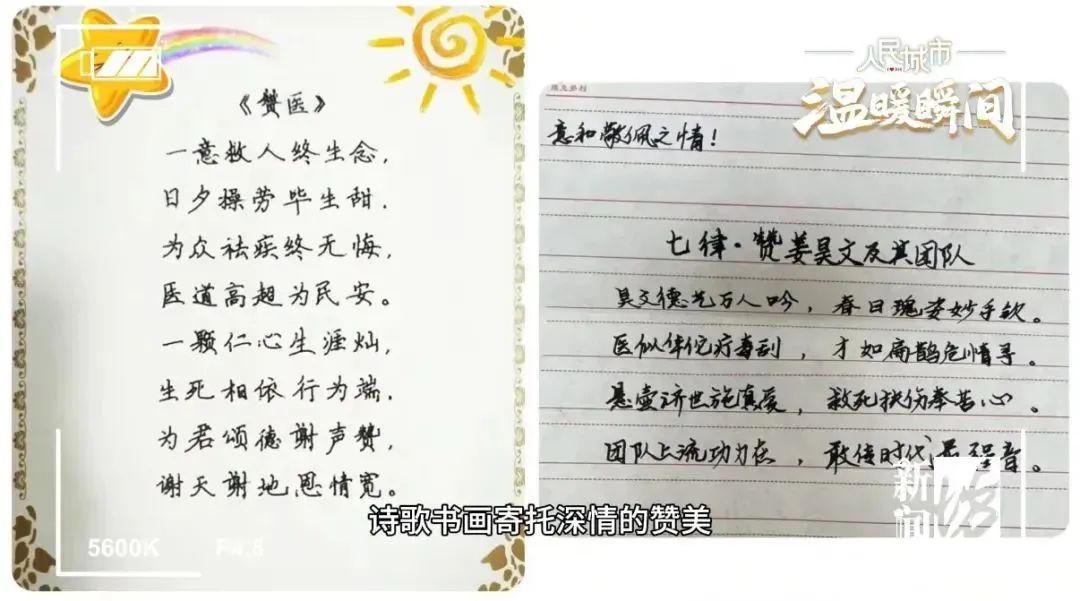 《赞医》
一意救人终生念，
日夕操劳毕生甜．
为众祛疾终无悔，
医道高超为民安。
一颗仁心生涯灿，
生死相依行为端．
为君颂德谢声赞，
谢天谢地恩情宽。
5600K
F4.5
人民城市
温暖瞬间
意和敬佩之情！
七律·赞姜昊文及其团队
昊文德艺万人吟，春日瑰姿妙手钦。
医似华佗疗毒刮，才如扁鹊危情寻。
悬壶济世施真爱，救死扶伤奉苦心。
团队上流功力在，敢传时代最强音。
新闻
诗歌书画寄托深情的赞美